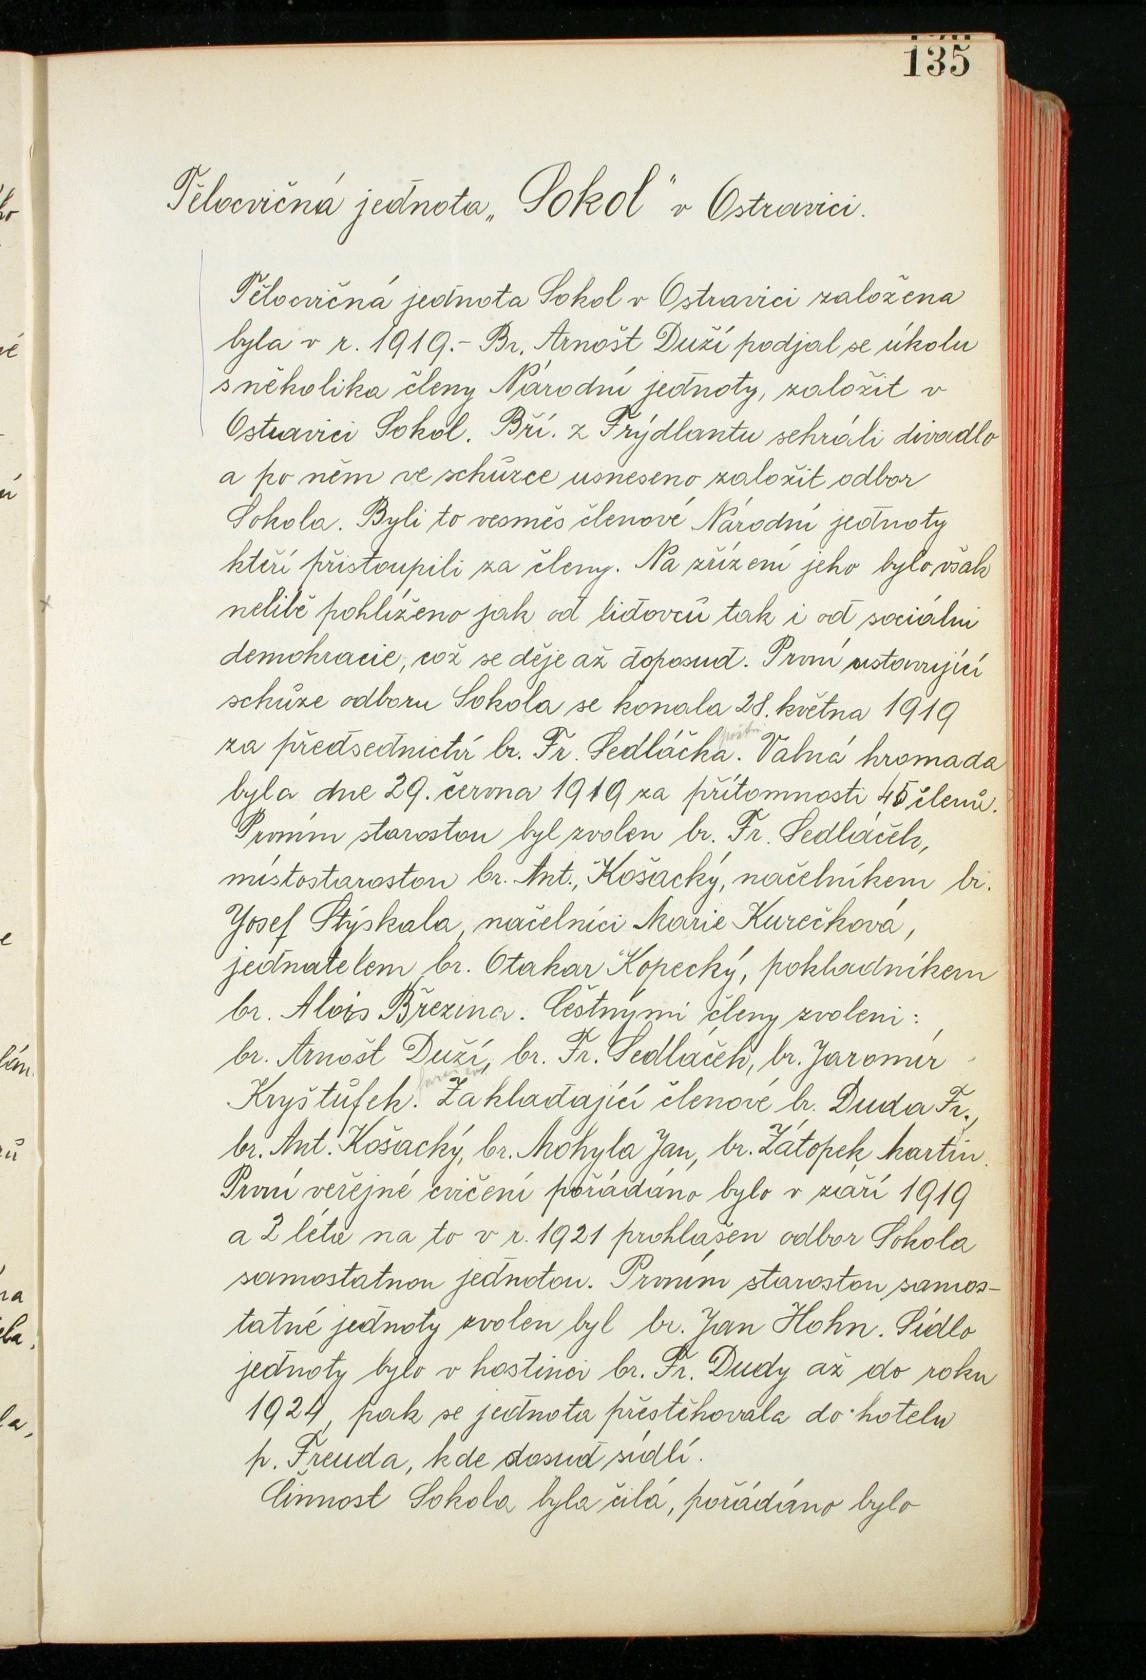 135
Tělocvičná jednota „Sokol" v Ostravici.
Tělocvičná jednota Sokol v Ostravici založena
byla v r. 1919.- Br. Arnošt Duží podjal se úkolu
s několika členy Národní jednoty, založit v
Ostravici Sokol. Bří. z Frýdlantu sehráli divadlo
a po něm ve schůzce usneseno založit odbor
Sokola. Byli to vesměs členové Národní jednoty
kteří přistoupili za členy. Na zřízení jeho bylo však
nelibě pohlíženo jak od lidovců tak i od sociální
demokracie, což se děje až doposud. První ustavující
schůze odboru Sokola se konala 28. května 1919
za předsednictví br. Fr. Sedláčka. Valná hromada
byla dne 29. června 1919 za přítomnosti 45 členů.
Prvním starostou byl zvolen br. Fr. Sedláček,
místostarostou br. Ant. Košacký, náčelníkem br.
Josef Stýskala, náčelnicí Marie Kurečková,
jednatelem br. Otakar Kopecký, pokladníkem
br. Alois Březina. Čestnými členy zvoleni:
br. Arnošt Duží, br. Fr. Sedláček, br. Jaromír
Kryštůfek. Zakladající členové br. Duda Fr.,
br. Ant. Košacký, br. Mohyla Jan, br. Zátopek Martin.
První veřejné cvičení pořádáno bylo v září 1919
a 2 léta na to v r. 1921 prohlášen odbor Sokola
samostatnou jednotou. Prvním starostou samos-
tatné jednoty zvolen byl br. Jan Hohn. Sídlo
jednoty bylo v hostinci br. Fr. Dudy až do roku
1924, pak se jednota přestěhovala do hotelu
p. Freuda, kde dosud sídlí.
Činnost Sokola byla čilá, pořádáno bylo